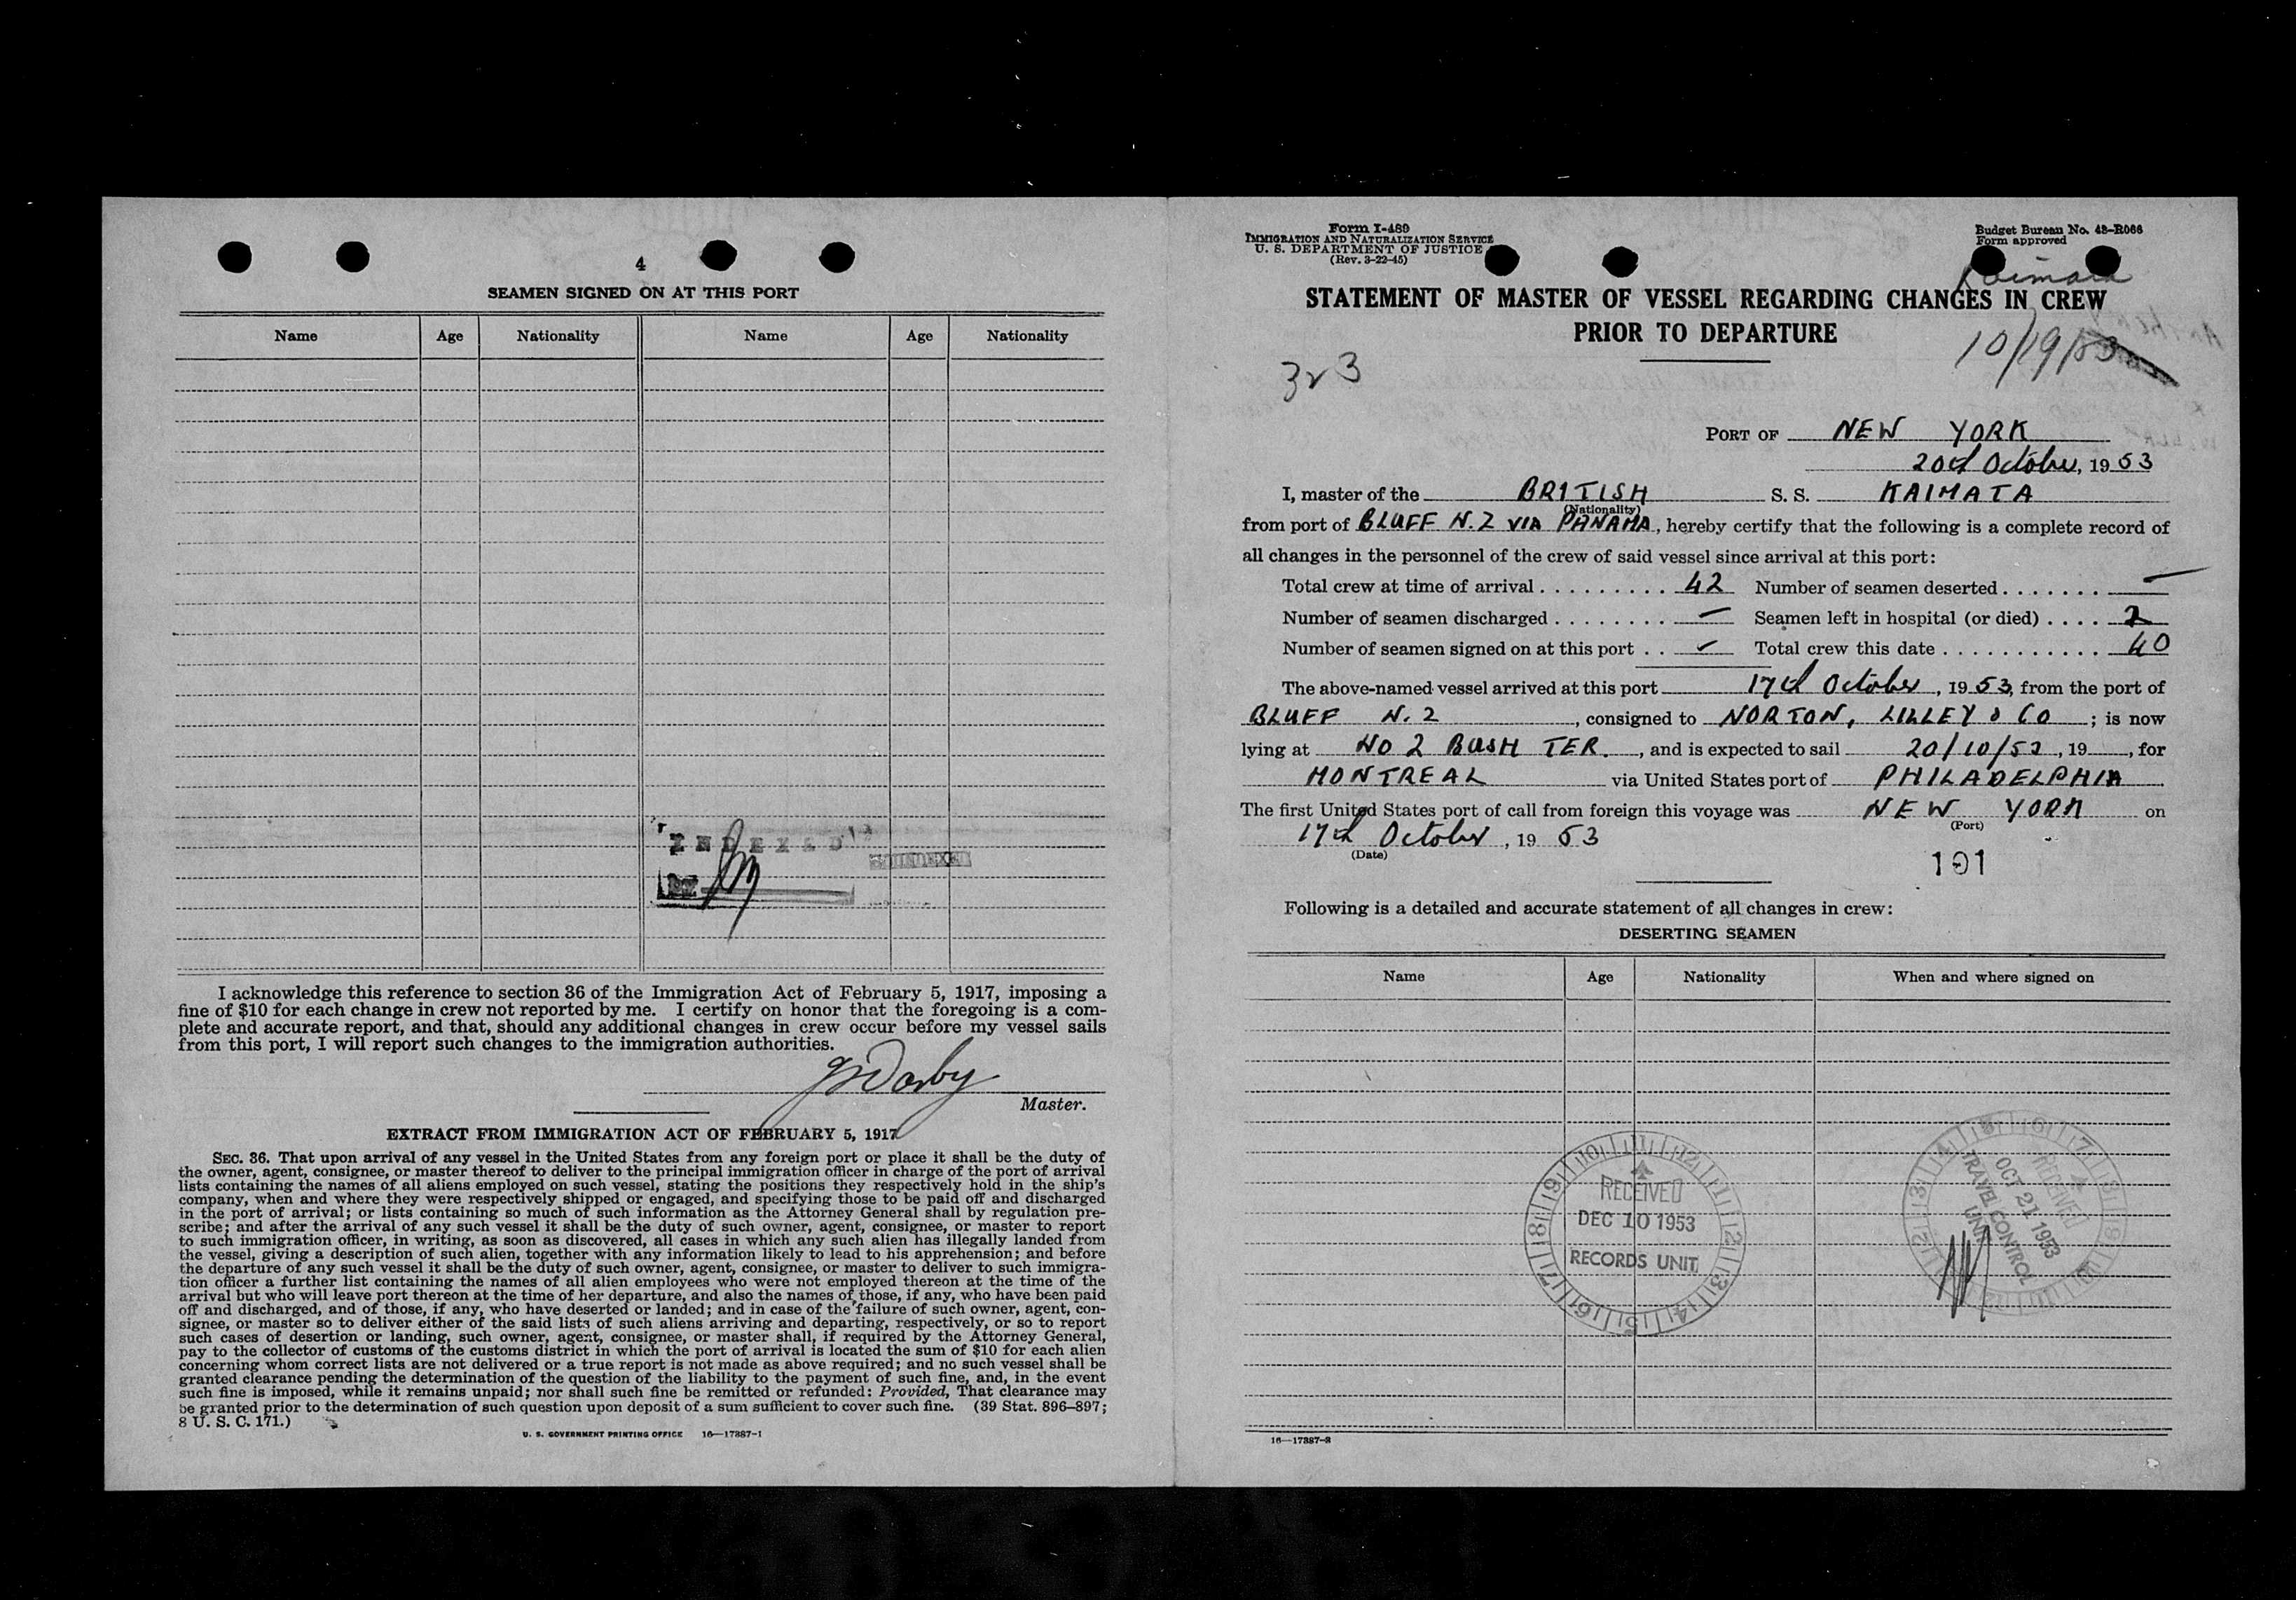 4
SEAMEN SIGNED ON AT THIS PORT
Name Age Nationality Name Age Nationality
"INDEXED"
BY
I acknowledge this reference to section 36 of the Immigration Act of February 5, 1917, imposing a
fine of $10 for each change in crew not reported by me. I certify on honor that the foregoing is a com-
plete and accurate report, and that, should any additional changes in crew occur before my vessel sails
from this port, I will report such changes to the immigration authorities.
Darby
Master.
EXTRACT FROM IMMIGRATION ACT OF FEBRUARY 5, 1917
SEC. 36. That upon arrival of any vessel in the United States from any foreign port or place it shall be the duty of
the owner, agent, consignee, or master thereof to deliver to the principal immigration officer in charge of the port of arrival
lists containing the names of all aliens employed on such vessel, stating the positions they respectively hold in the ship's
company, when and where they were respectively shipped or engaged, and specifying those to be paid off and discharged
in the port of arrival; or lists containing so much of such information as the Attorney General shall by regulation pre-
scribe; and after the arrival of any such vessel it shall be the duty of such owner, agent, consignee, or master to report
to such immigration officer, in writing, as soon as discovered, all cases in which any such alien has illegally landed from
the vessel, giving a description of such alien, together with any information likely to lead to his apprehension; and before
the departure of any such vessel it shall be the duty of such owner, agent, consignee, or master to deliver to such immigra-
tion officer a further list containing the names of all alien employees who were not employed thereon at the time of the
arrival but who will leave port thereon at the time of her departure, and also the names of those, if any, who have been paid
off and discharged, and of those, if any, who have deserted or landed; and in case of the failure of such owner, agent, con-
signee, or master so to deliver either of the said lists of such aliens arriving and departing, respectively, or so to report
such cases of desertion or landing, such owner, agent, consignee, or master shall, if required by the Attorney General,
pay to the collector of customs of the customs district in which the port of arrival is located the sum of $10 for each alien
concerning whom correct lists are not delivered or a true report is not made as above required; and no such vessel shall be
granted clearance pending the determination of the question of the liability to the payment of such fine, and, in the event
such fine is imposed, while it remains unpaid; nor shall such fine be remitted or refunded: Provided, That clearance may
be granted prior to the determination of such question upon deposit of a sum sufficient to cover such fine. (39 Stat. 896–897;
8 U. S. C. 171.)
U. S. GOVERNMENT PRINTING OFFICE 16—17387-1
Form I-489
IMMIGRATION AND NATURALIZATION SERVICE
U. S. DEPARTMENT OF JUSTICE
(Rev. 3-22-45)
Budget Bureau No. 43-R066
Form approved
Kaimata
STATEMENT OF MASTER OF VESSEL REGARDING CHANGES IN CREW
PRIOR TO DEPARTURE
10/19/53
3r3
PORT OF NEW YORK
20th October, 19 53
I, master of the BRITISH S. S. KAIMATA
(Nationality)
from port of BLUFF N.Z VIA PANAMA, hereby certify that the following is a complete record of
all changes in the personnel of the crew of said vessel since arrival at this port:
Total crew at time of arrival . . . . . . . . . 42 Number of seamen deserted . . . . . . . —
Number of seamen discharged . . . . . . . . — Seamen left in hospital (or died) . . . . 2
Number of seamen signed on at this port . . – Total crew this date . . . . . . . . . . . . 40
The above-named vessel arrived at this port 17th October, 19 53, from the port of
BLUFF N.Z, consigned to NORTON, LILLEY & CO; is now
lying at NO 2 BUSH TER., and is expected to sail 20/10/53, 19 , for
MONTREAL via United States port of PHILADELPHIA
The first United States port of call from foreign this voyage was NEW YORK on
(Port)
17th October, 19 53
(Date)
191
Following is a detailed and accurate statement of all changes in crew:
DESERTING SEAMEN
Name Age Nationality When and where signed on
RECEIVED
DEC 10 1953
RECORDS UNIT
RECEIVED
OCT 21 1953
TRAVEL CONTROL
UNIT
16—17387-2